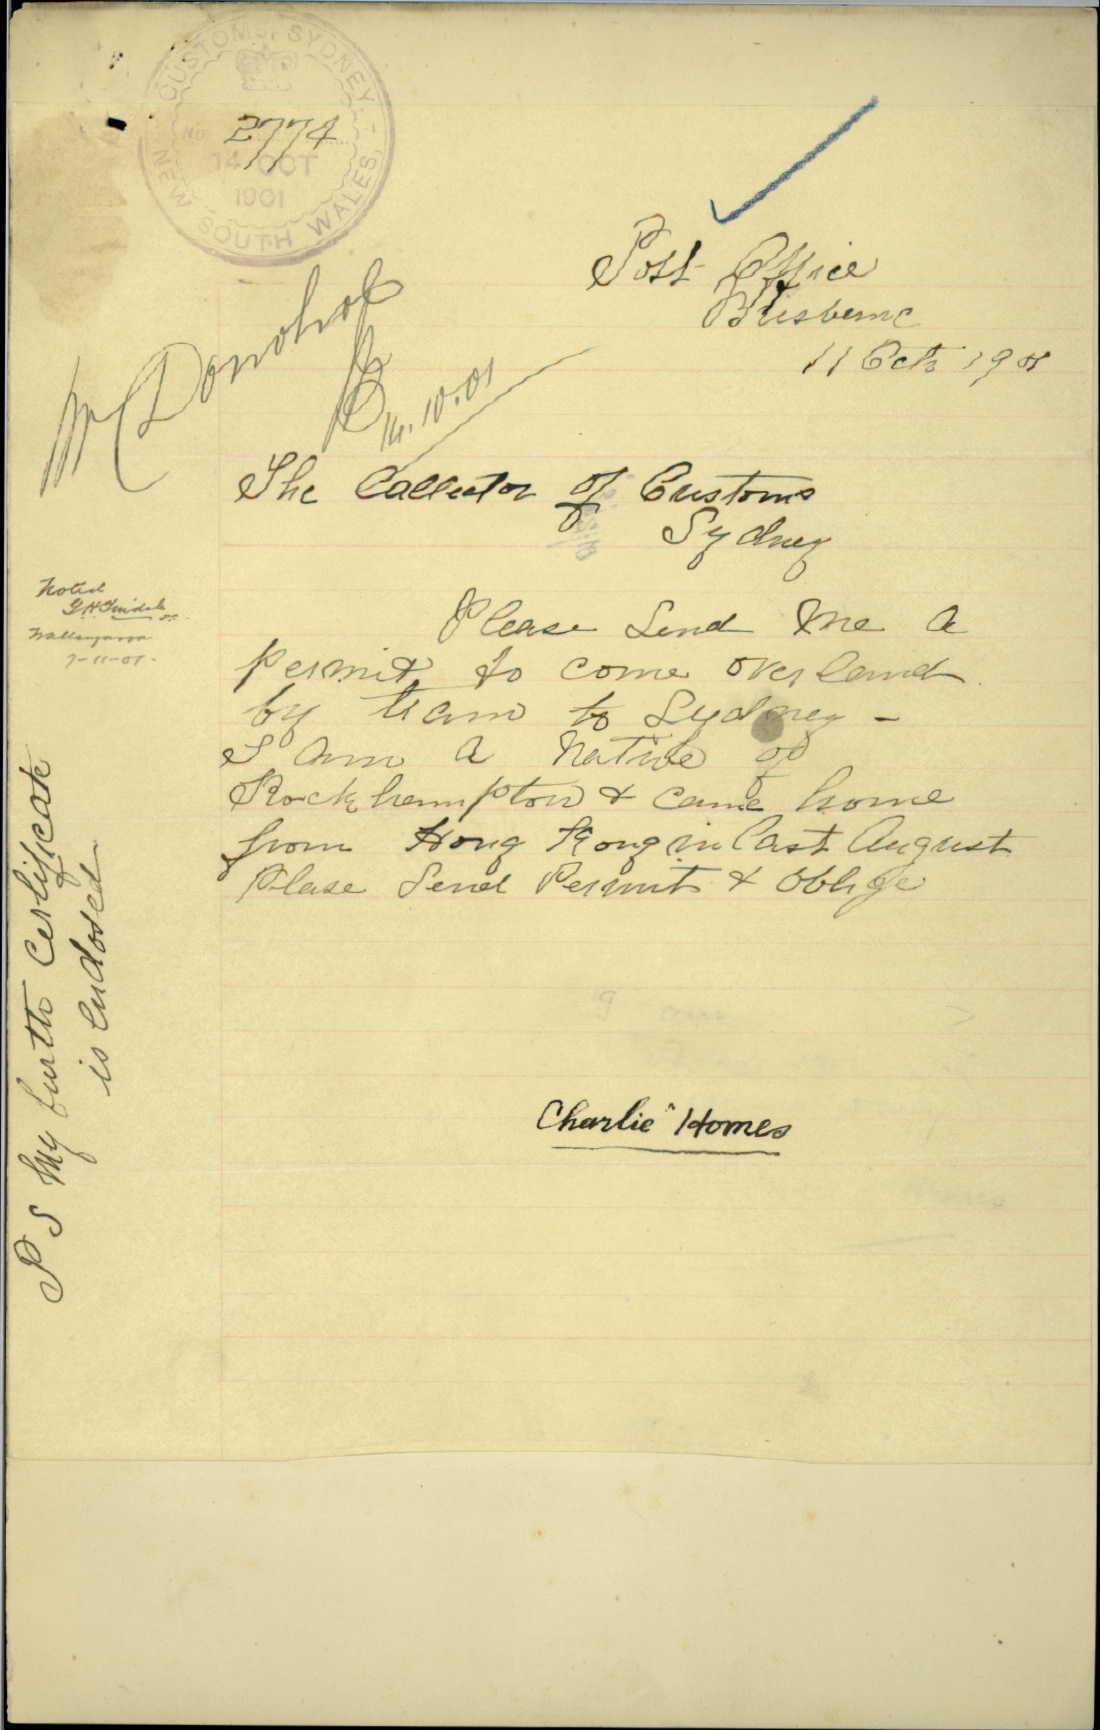 CUSTOMS, SYDNEY,
NEW SOUTH WALES,
No 2774
14 OCT
1901
Post Office
Brisbane
11 Oct 1901
Mr Donohoe
14.10.01
The Collector of Customs
Sydney
Noted
Wallangarra
7-11-01-
Please Send Me a
permit to come overland
by train to Sydney -
I am a Native of
Rockhampton & came home
from Hong Kong in last August
Plase Send Permit & oblige
Charlie Homes
P S My birth Certificate
is enclosed